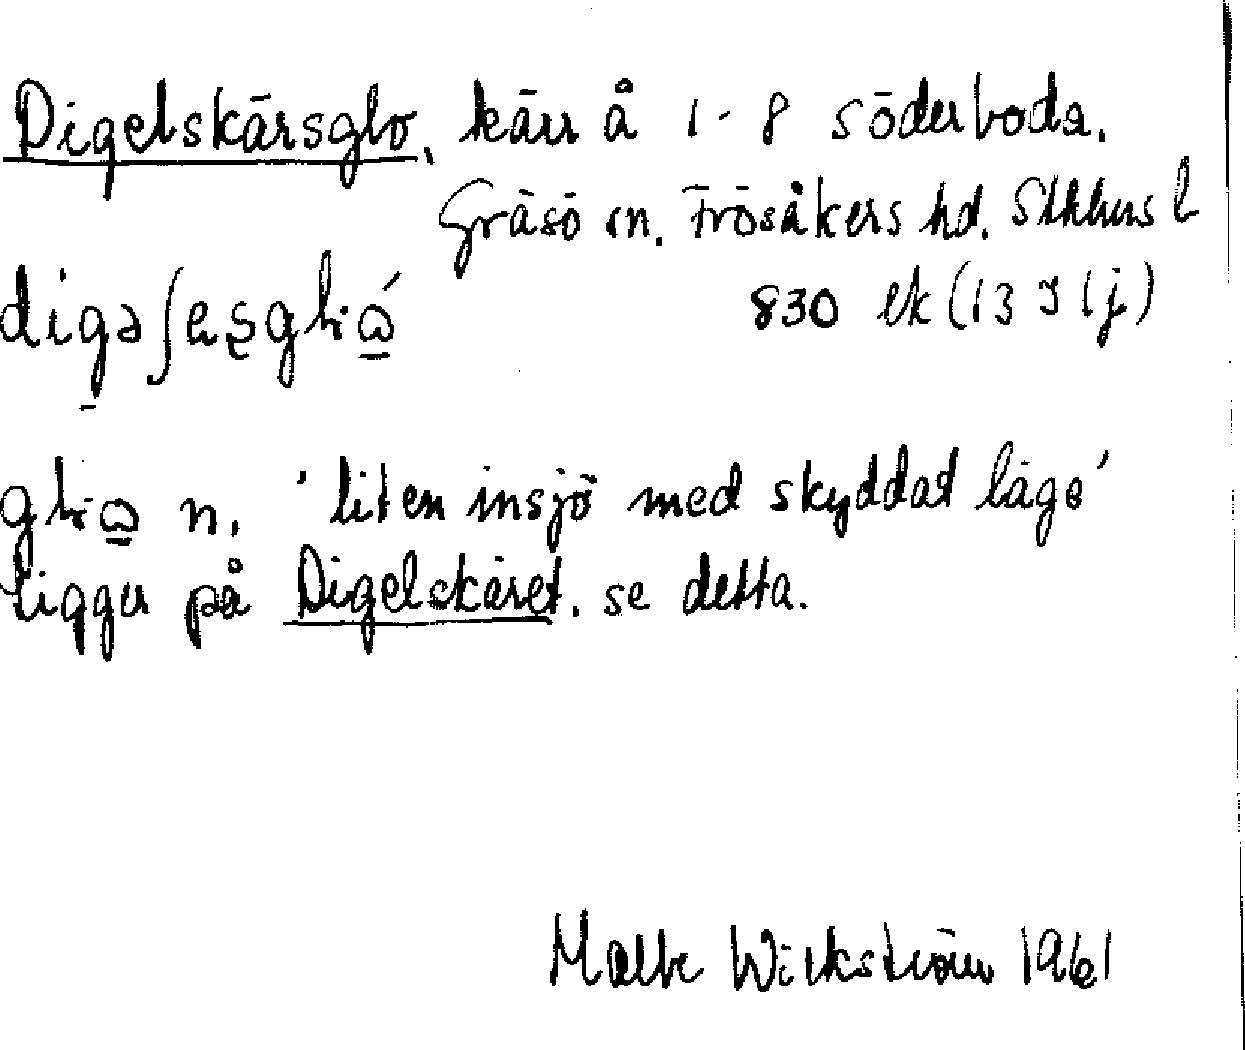 Digelskärsglo, kärr å 1-8 Söderboda.
Gräsö sn. Frösåkers hd. Sthlms l
830 ek (13 I 1j)
glo n. 'liten insjö med skyddat läge'
ligger på Digelskäret. se detta.
Malte Wickström 1961